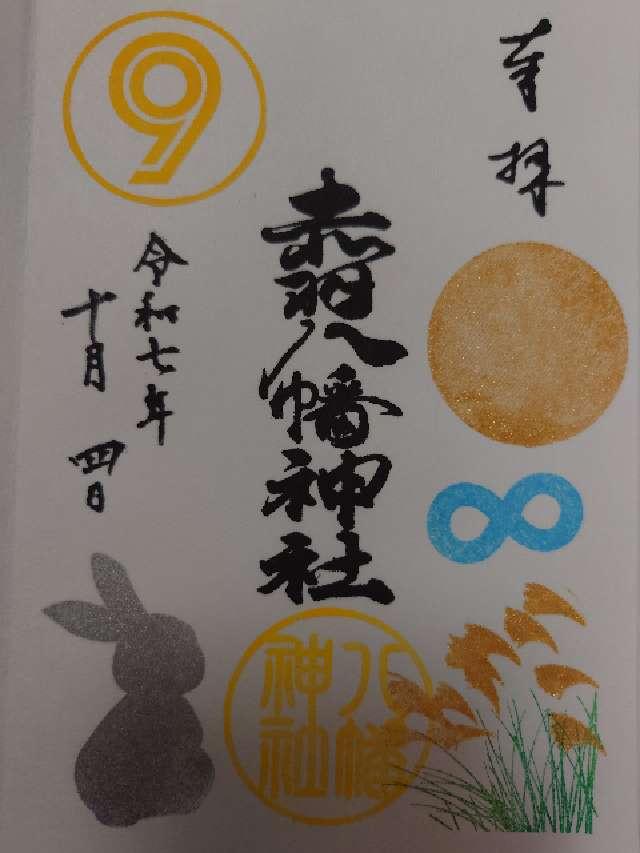 奉拝
赤羽八幡神社
八幡
神社
9
令和七年
十月 四日